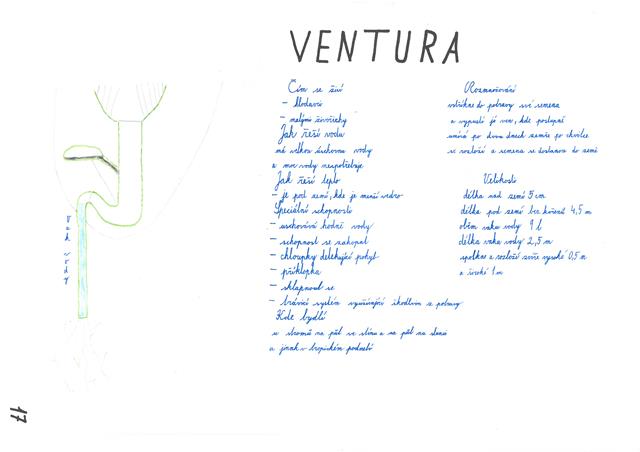 VENTURA
Čím se živí
- hlodavci
- malými živočichy
Jak řeší vodu
má velkou úschovnu vody
a moc vody nespotřebuje
Jak řeší teplo
- je pod zemí, kde je menší vedro
Speciální schopnosti
- uschovává hodně vody
- schopnost se zakopat
- chloupky detekující pohyb
- příklopka
- sklapnout se
- trávící systém využívající škodlivin z potravy
Kde bydlí
u stromů na půl ve stínu a na půl na slunci
a jinak v tropickém podnebí
Rozmnožování
vstříkne do potravy svá semena
a vypustí je ven, kde postupně
umírá po dvou dnech zemře po chvilce
se rozloží a semena se dostanou do země
Velikosti
délka nad zemí 5 cm
délka pod zemí bez kořenů 4,5 m
objem vaku vody 9 l
délka vaku vody 2,5 m
spolkne a rozloží zvíře vysoké 0,5 m
a široké 1 m
vak vody
17